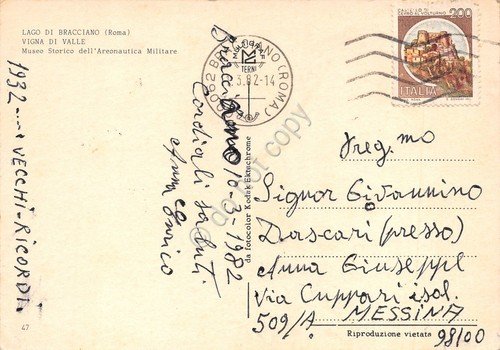 LAGO DI BRACCIANO (Roma)
VIGNA DI VALLE
Museo Storico dell'Areonautica Militare
1932 .... VECCHI-RICORDI.
Bracciano 10-3-1982
Cordiali saluti
Anna e Enrico
00062 BRACCIANO (ROMA)
3.82-14
TERNI
200
ITALIA
da fotocolor Kodak Ektachrome
do not copy
Preg.mo
Signor Giovannino
Dascari (presso)
Anna Giuseppe
Via Cuppari isol.
509/A. MESSINA
98100
Riproduzione vietata
47